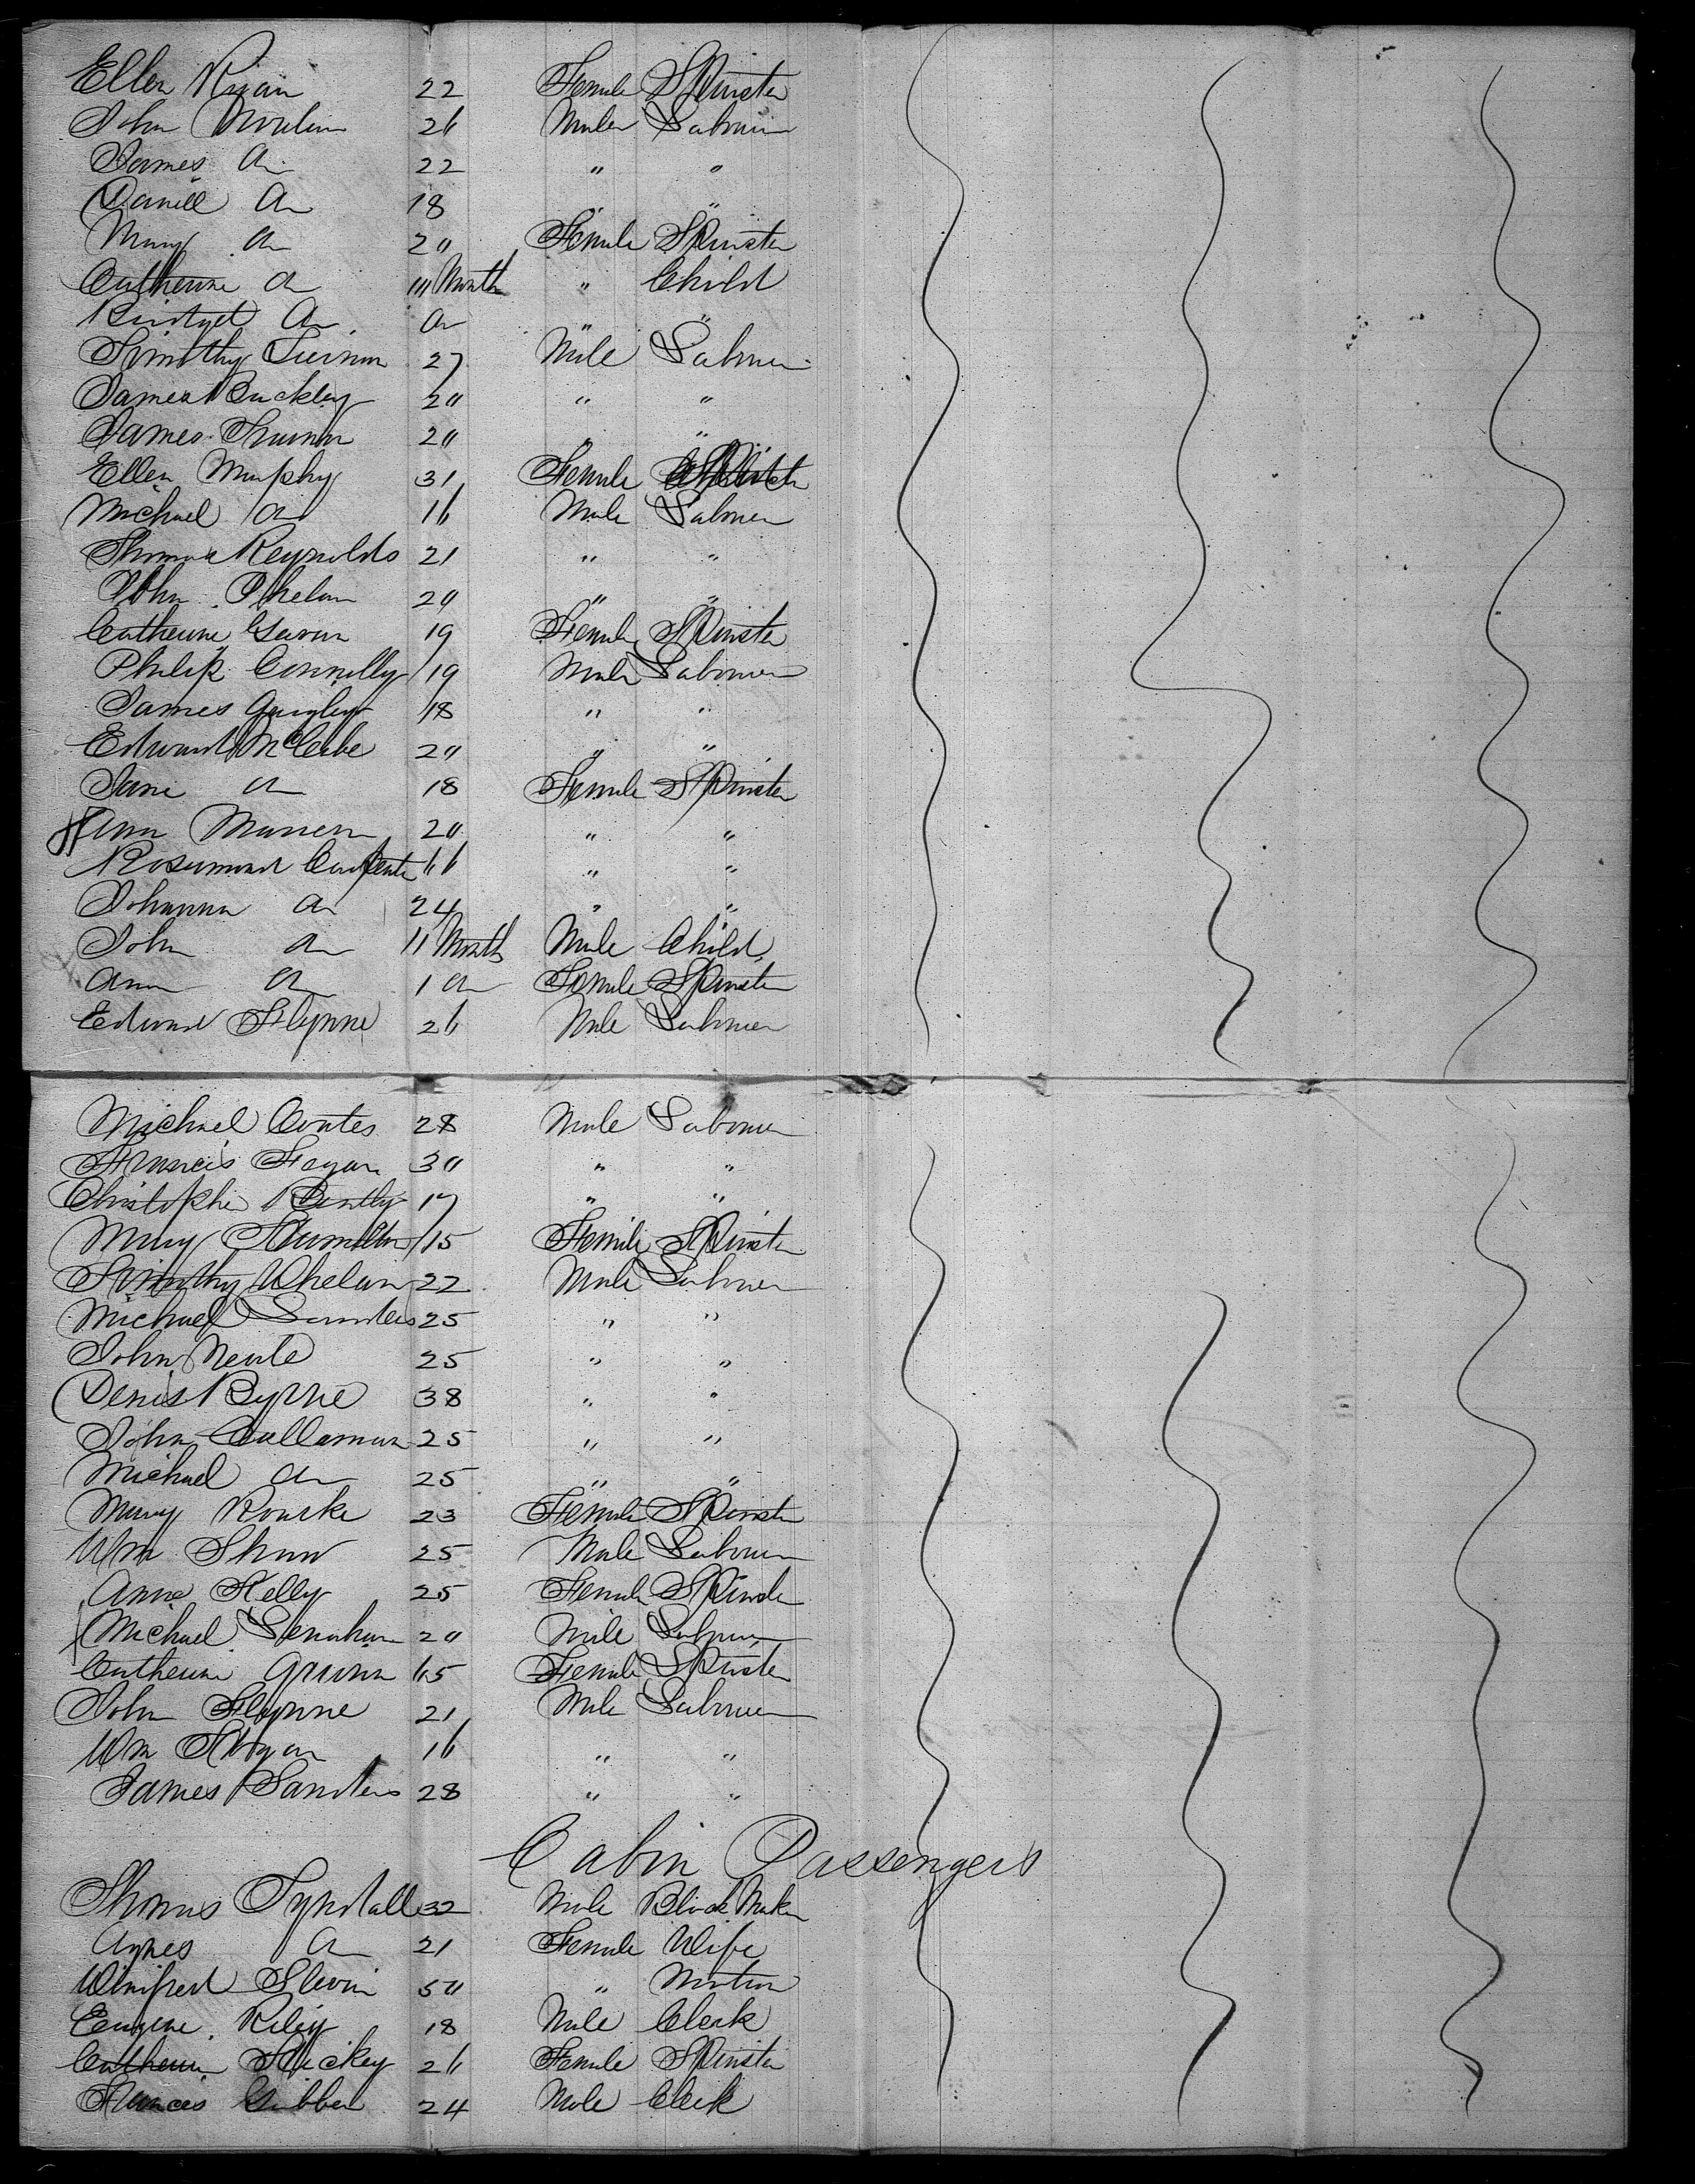 Ellen Ryan 22 Female Spinster
John 26 Male Labourer
James Do 22 " "
Daniel Do 18 " "
Mary Do 20 Female Spinster
Catherine Do 10 Month " Child
Bridget Do Do " "
Timothy 27 Male Labourer
James Buckley 20 " "
James 20 " "
Ellen Murphy 31 Female
Michael Do 16 Male Labourer
Thomas Reynolds 21 " "
John Phelan 20 " "
Catherine 19 Female Spinster
Philip Connolly 19 Male Labourer
James Quigley 18 " "
Edward McCabe 20 " "
Jane Do 18 Female Spinster
Ann 20 " "
Rosemond Carpenter 66 " "
Johanna Do 24 " "
John Do 11 Month Male Child
Ann Do 1 Do Female Spinster
Edward Flynne 26 Male Labourer
Michael Coates 28 Male Labourer
Francis Fagan 30 " "
Christopher Bently 17 " "
Mary Hamilton 15 Female Spinster
Timothy Whelan 22 Male Labourer
Michael Saunders 25 " "
John Neale 25 " "
Denis Byrne 38 " "
John Callaman 25 " "
Michael Do 25 " "
Mary Rourke 23 Female Spinster
Wm Shaw 25 Male Labourer
Anne Kelly 25 Female Spinster
Michael Lenahan 20 Male Labourer
Catherine 65 Female Spinster
John Flynne 21 Male Labourer
Wm Hogan 16 " "
James Sanders 28 " "
Cabin Passengers
Thomas Tyndall 32 Male Block Maker
Agnes Do 21 Female Wife
Winifred Slevin 50 " Matron
Eugene Riley 18 Male Clerk
Catherine Hickey 26 Female Spinster
Frances Gibben 24 Male Clerk